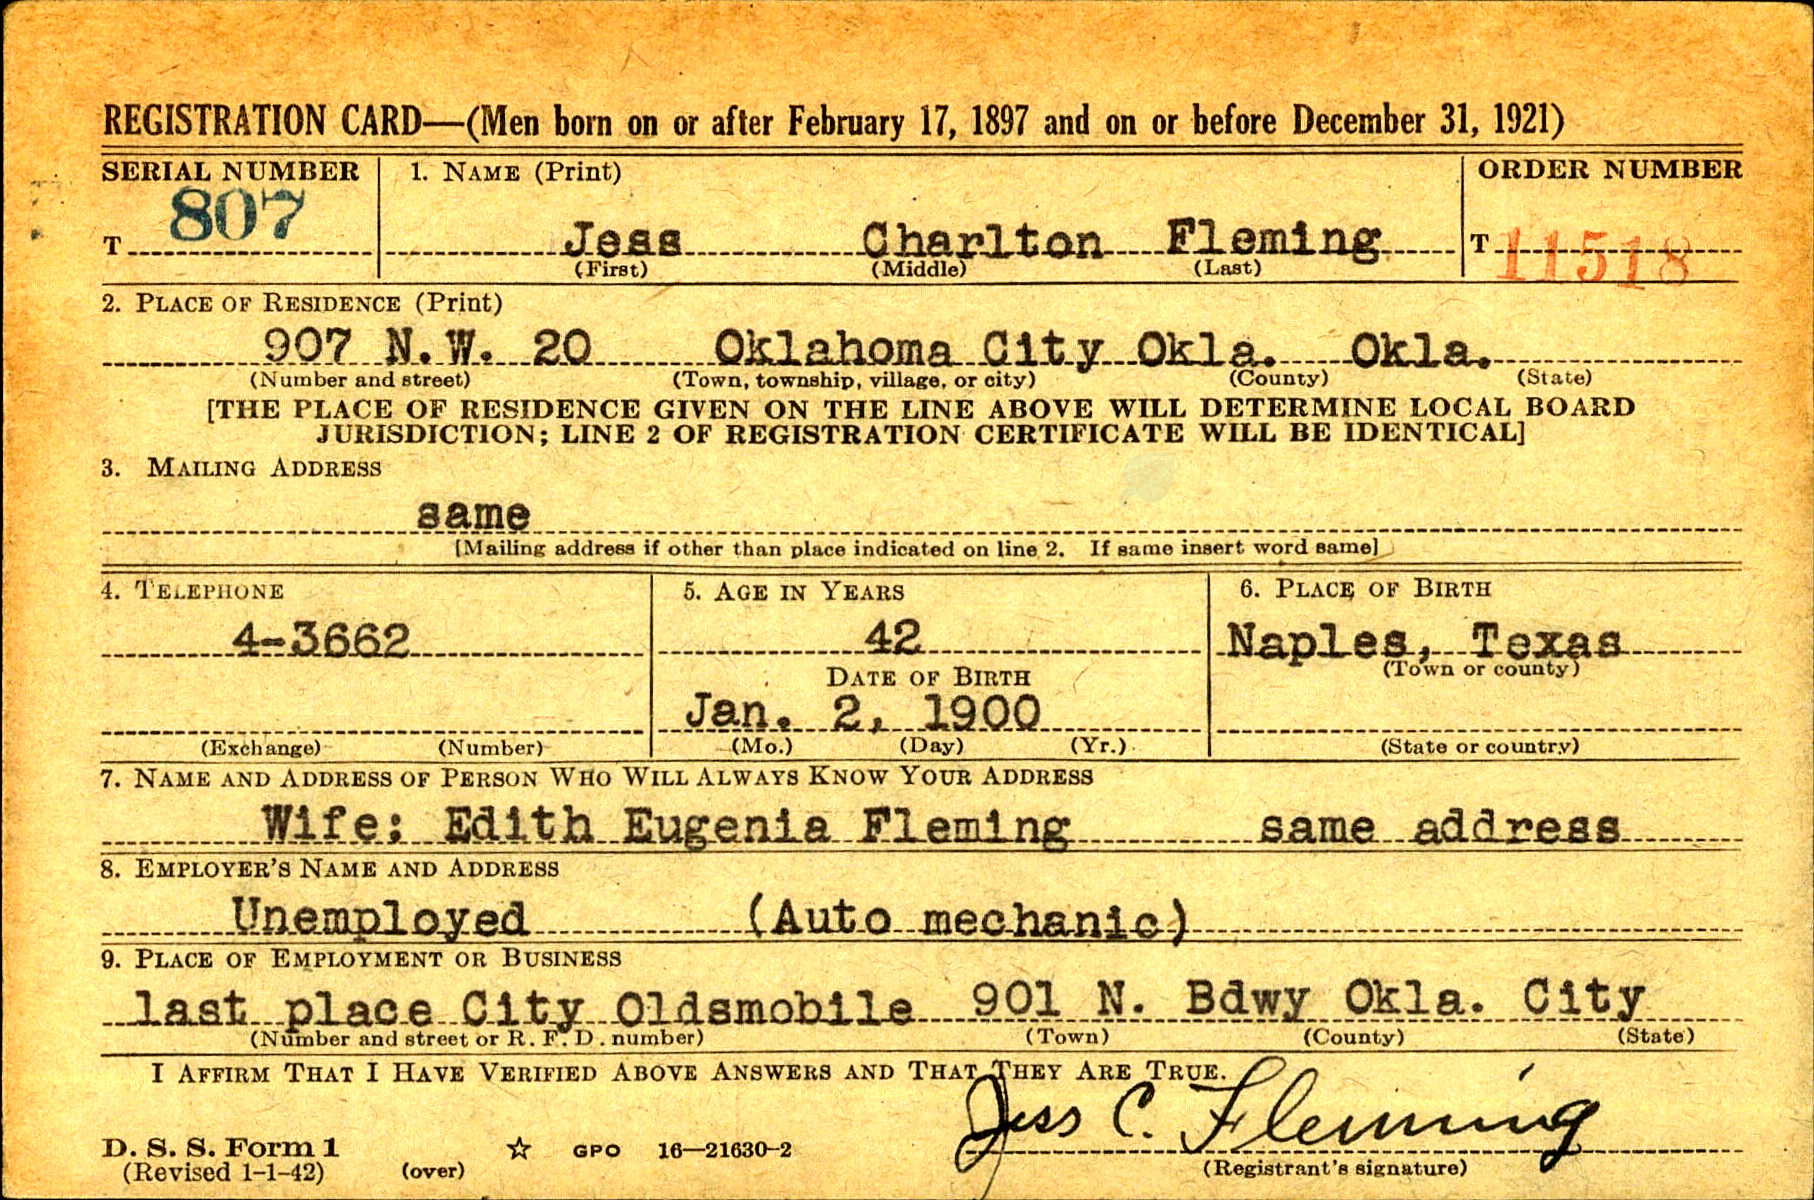 REGISTRATION CARD—(Men born on or after February 17, 1897 and on or before December 31, 1921)
SERIAL NUMBER 1. NAME (Print) ORDER NUMBER
T 807 Jess Charlton Fleming T 11518
(First) (Middle) (Last)
2. PLACE OF RESIDENCE (Print)
907 N.W. 20 Oklahoma City Okla. Okla.
(Number and street) (Town, township, village, or city) (County) (State)
[THE PLACE OF RESIDENCE GIVEN ON THE LINE ABOVE WILL DETERMINE LOCAL BOARD
JURISDICTION; LINE 2 OF REGISTRATION CERTIFICATE WILL BE IDENTICAL]
3. MAILING ADDRESS
same
[Mailing address if other than place indicated on line 2. If same insert word same]
4. TELEPHONE 5. AGE IN YEARS 6. PLACE OF BIRTH
4-3662 42 Naples, Texas
(Town or county)
DATE OF BIRTH
Jan. 2, 1900
(Exchange) (Number) (Mo.) (Day) (Yr.) (State or country)
7. NAME AND ADDRESS OF PERSON WHO WILL ALWAYS KNOW YOUR ADDRESS
Wife: Edith Eugenia Fleming same address
8. EMPLOYER'S NAME AND ADDRESS
Unemployed (Auto mechanic)
9. PLACE OF EMPLOYMENT OR BUSINESS
last place City Oldsmobile 901 N. Bdwy Okla. City
(Number and street or R. F. D. number) (Town) (County) (State)
I AFFIRM THAT I HAVE VERIFIED ABOVE ANSWERS AND THAT THEY ARE TRUE.
Jess C. Fleming
D. S. S. Form 1
(Revised 1-1-42) (over) ☆ GPO 16—21630-2 (Registrant's signature)